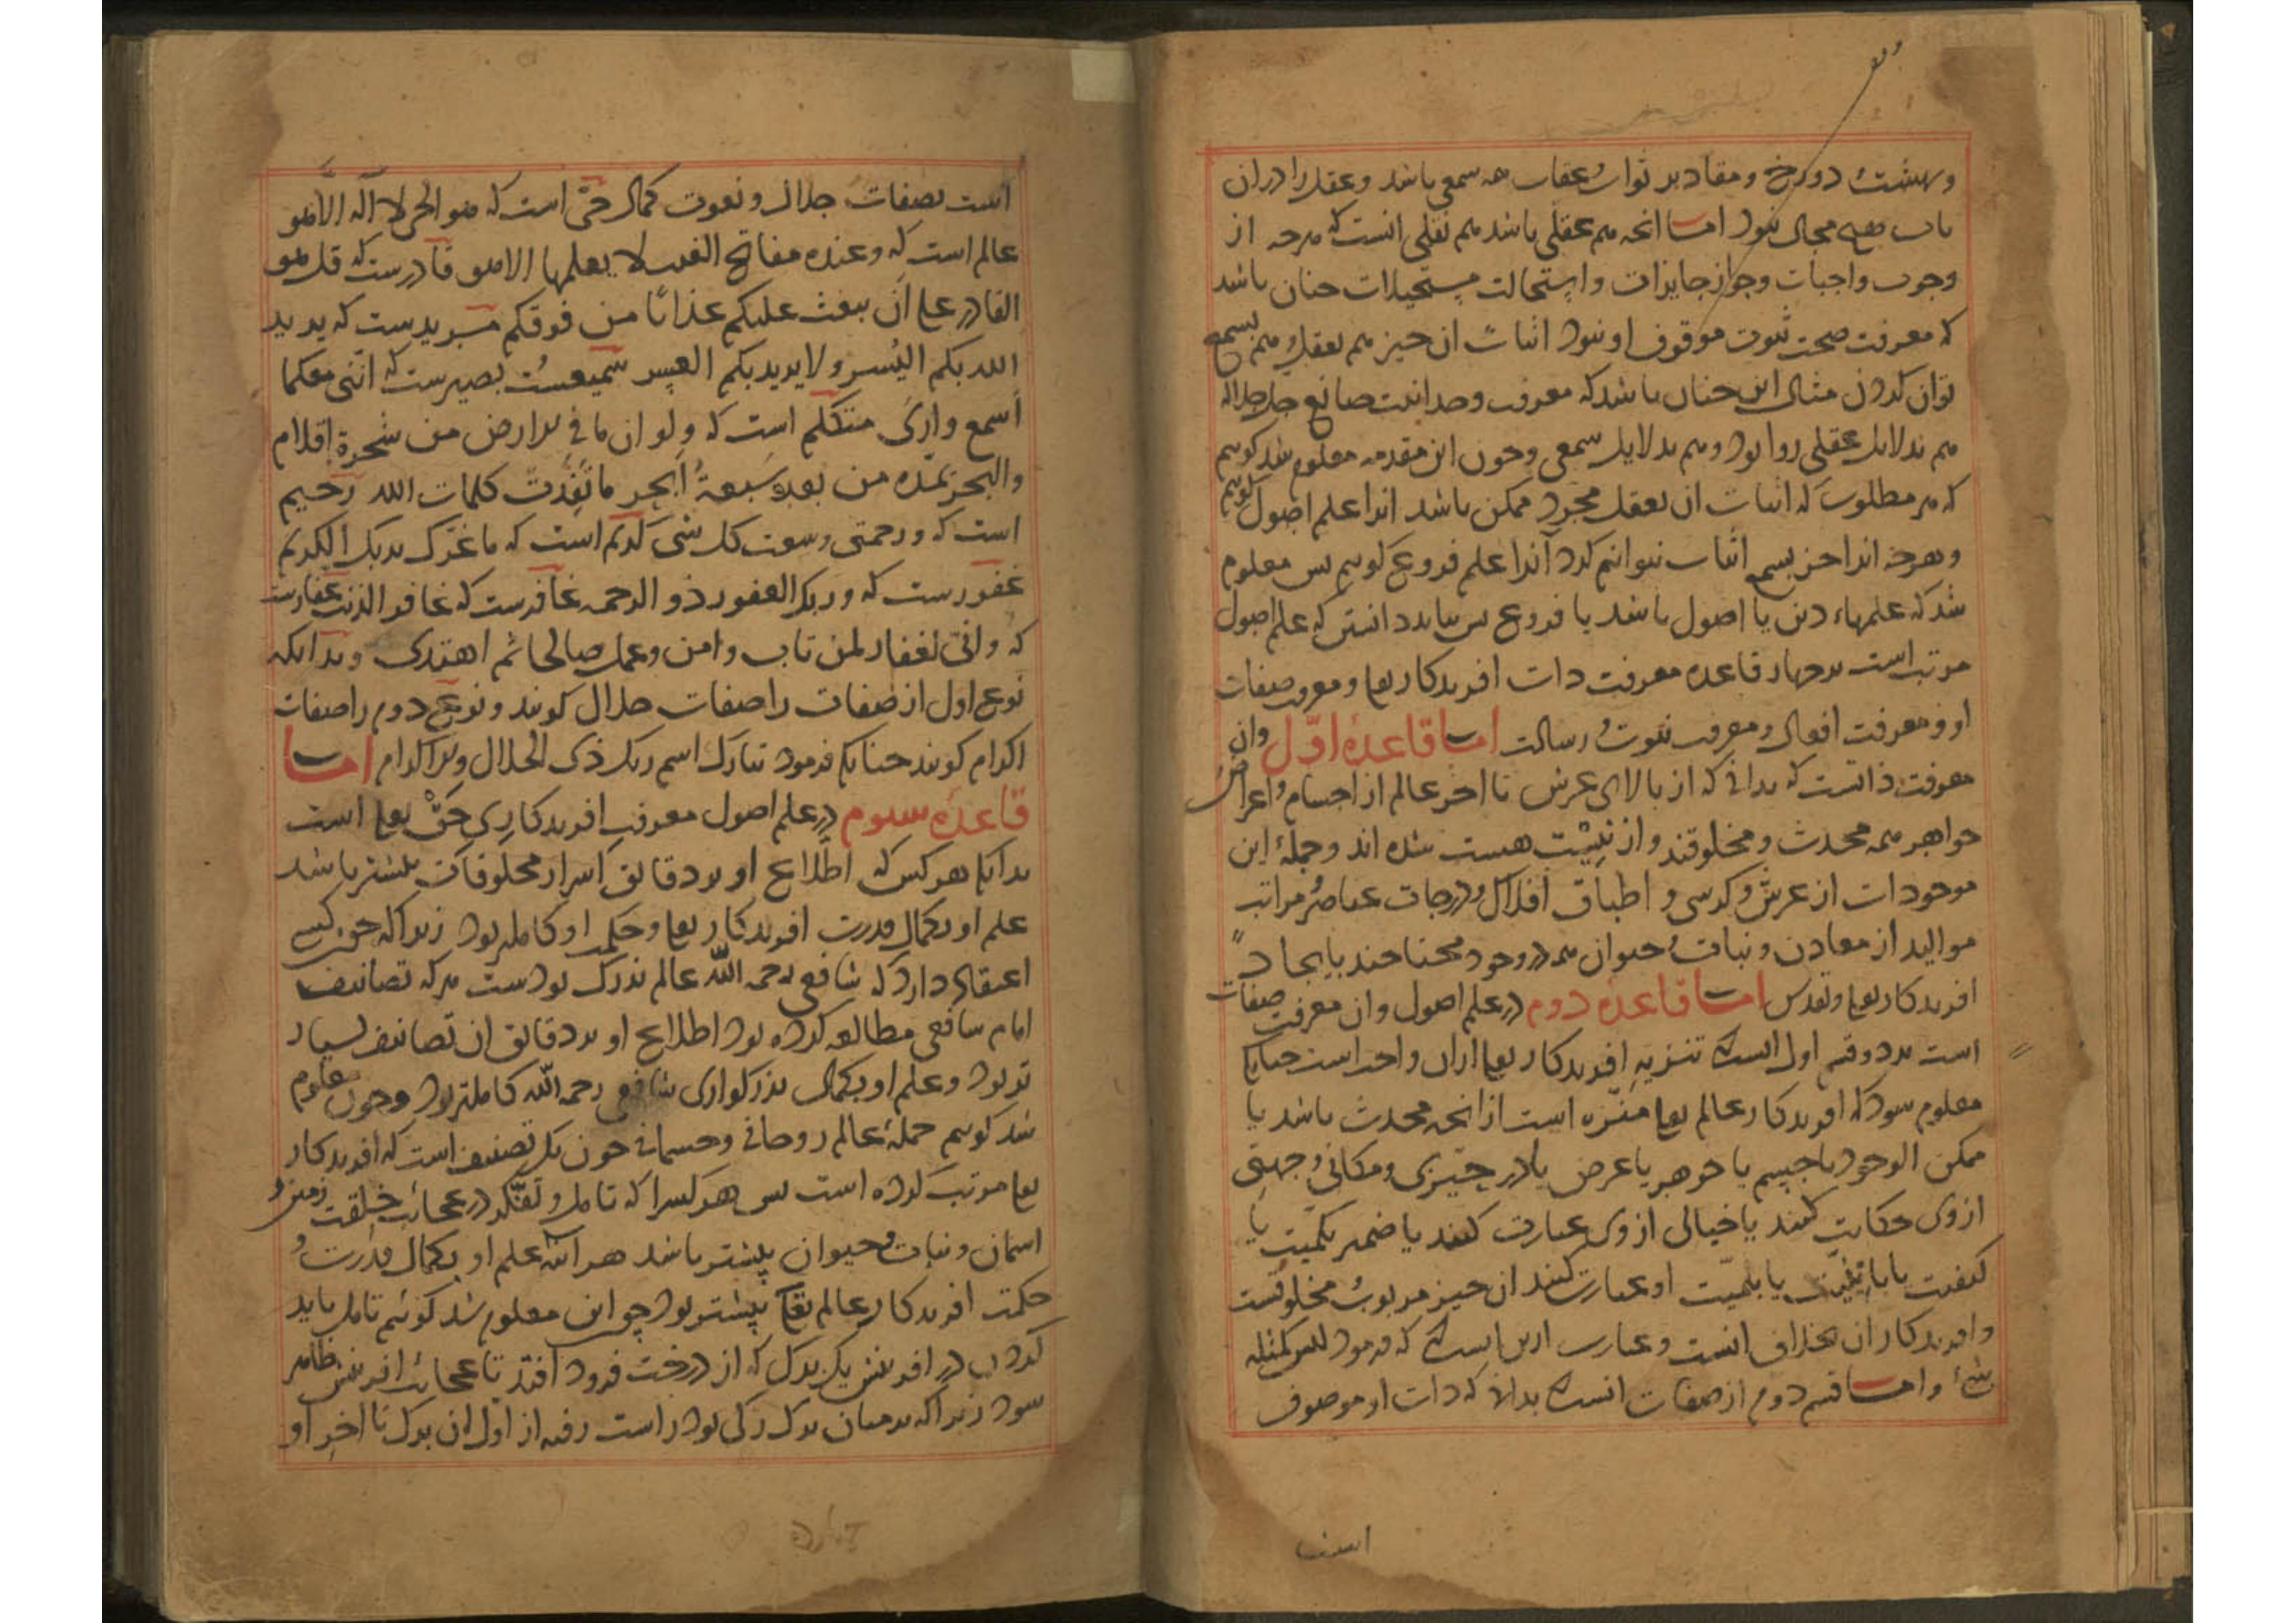 وبهشت و دوزخ و مقادیر ثواب و عقاب همه سمعی باشد و عقل را در آن
باب هیچ مجال نبود اما آنچه هم عقلی باشد هم نقلی آنست که هرچه از
وجوب واجبات و جواز جایزات و استحالت مستحیلات چنان باشد
که معرفت صحت نبوت موقوف او نبود اثبات آن چیز هم بعقل و هم بسمع
توان کردن مثال این چنان باشد که معرفت وحدانیت صانع جل جلاله
هم بدلایل عقلی روا بود و هم بدلایل سمعی و چون این مقدمه معلوم شد گوییم
که هر مطلوب که اثبات آن بعقل مجرد ممکن باشد آنرا علم اصول گوییم
و هرچه آنرا جز بسمع اثبات نتوانیم کرد آنرا علم فروع گوییم پس معلوم
شد که علمهاء دین یا اصول باشد یا فروع پس بباید دانستن که علم اصول
مرتب است بر چهار قاعده معرفت ذات آفریدکار تعالی و معرفت صفات
او و معرفت افعال و معرفت نبوت و رسالت اما قاعدهٔ اوّل و آن
معرفت ذاتست که بدانی که از بالای عرش تا آخر عالم از اجسام و اعراض و
جواهر همه محدث و مخلوقند و از نیست هست شده اند و جملهٔ این
موجودات از عرش و کرسی و اطباق افلاک و درجات عناصر و مراتب
موالید از معادن و نبات و حیوان همه در وجود محتاجند بایجاد
آفریدکار تعالی و تقدس اما قاعدهٔ دوم در علم اصول و آن معرفت صفات
است بر دو قسم اول آنست که تنزیه آفریدکار تعالی از آن واجب است چنانک
معلوم شود که آفریدکار عالم تعالی منزّه است از آنچه محدث باشد یا
ممکن الوجود یا جسم یا جوهر یا عرض یا در حیّزی و مکانی و جهتی
از وی حکایت کنند یا خیالی از وی عبارت کنند یا ضمیر بکمیّت یا
کیفیت یا باینیّت یا بلمیّت او عبارت کنند آن چیز مربوب و مخلوقست
و آفریدکار آن بخلاف آنست و عبارت ازین اینست که فرمود لیس کمثله
شئ و اما قسم دوم از صفات آنست که بدانی که ذات او موصوف
است
است بصفات جلال و نعوت کمال حیّ است که هو الحی لا اله الا هو
عالم است که و عنده مفاتح الغیب لا یعلمها الا هو قادرست که قل هو
القادر علی ان یبعث علیکم عذابا من فوقکم مریدست که یرید
الله بکم الیُسر و لا یرید بکم العسر سمیعست بصیرست که اننی معکما
اسمع و اری متکلم است که و لو ان ما فی الارض من شجرة اقلام
والبحر یمده من بعده سبعة ابحر ما نفدت کلمات الله رحیم
است که و رحمتی وسعت کل شی کریم است که ما غرّک بربک الکریم
غفورست که و ربک الغفور ذو الرحمه غافرست که غافر الذنب غفارست
که و انی لغفار لمن تاب و امن و عمل صالحا ثم اهتدی و بدانکه
نوع اول از صفات را صفات جلال گویند و نوع دوم را صفات
اکرام گویند چنانک فرمود تبارک اسم ربک ذی الجلال و الاکرام اما
قاعدهٔ سوم در علم اصول معرفت آفریدکاری حق تعالی است
بدانک هر کس که اطلاع او بر دقایق اسرار مخلوقات بیشتر باشد
علم او بکمال قدرت آفریدکار تعالی و حکمت او کاملتر بود زیراکه چون کسی
اعتقاد دارد که شافعی رحمه الله عالم بزرگ بودست هرکه تصانیف
امام شافعی مطالعه کرده بود اطلاع او بر دقایق آن تصانیف بسیار
تر بود و علم او بکمال بزرگواری شافعی رحمه الله کاملتر بود و چون معلوم
شد گوییم جملهٔ عالم روحانی و جسمانی چون یک تصنیف است که آفریدکار
تعالی مرتب کرده است پس هر کسرا که تامل و تفکر در عجایب خلقت زمین و
آسمان و نبات و حیوان بیشتر باشد هر آینه علم او بکمال قدرت و
حکمت آفریدکار عالم تعالی بیشتر بود چو این معلوم شد گوئیم تامل باید
کردن در آفرینش یک برگ که از درخت فرود افتد تا عجایب آفرینش ظاهر
شود زیراکه بر میان برگ رگی بود راست رفته از اول آن برگ تا آخر او